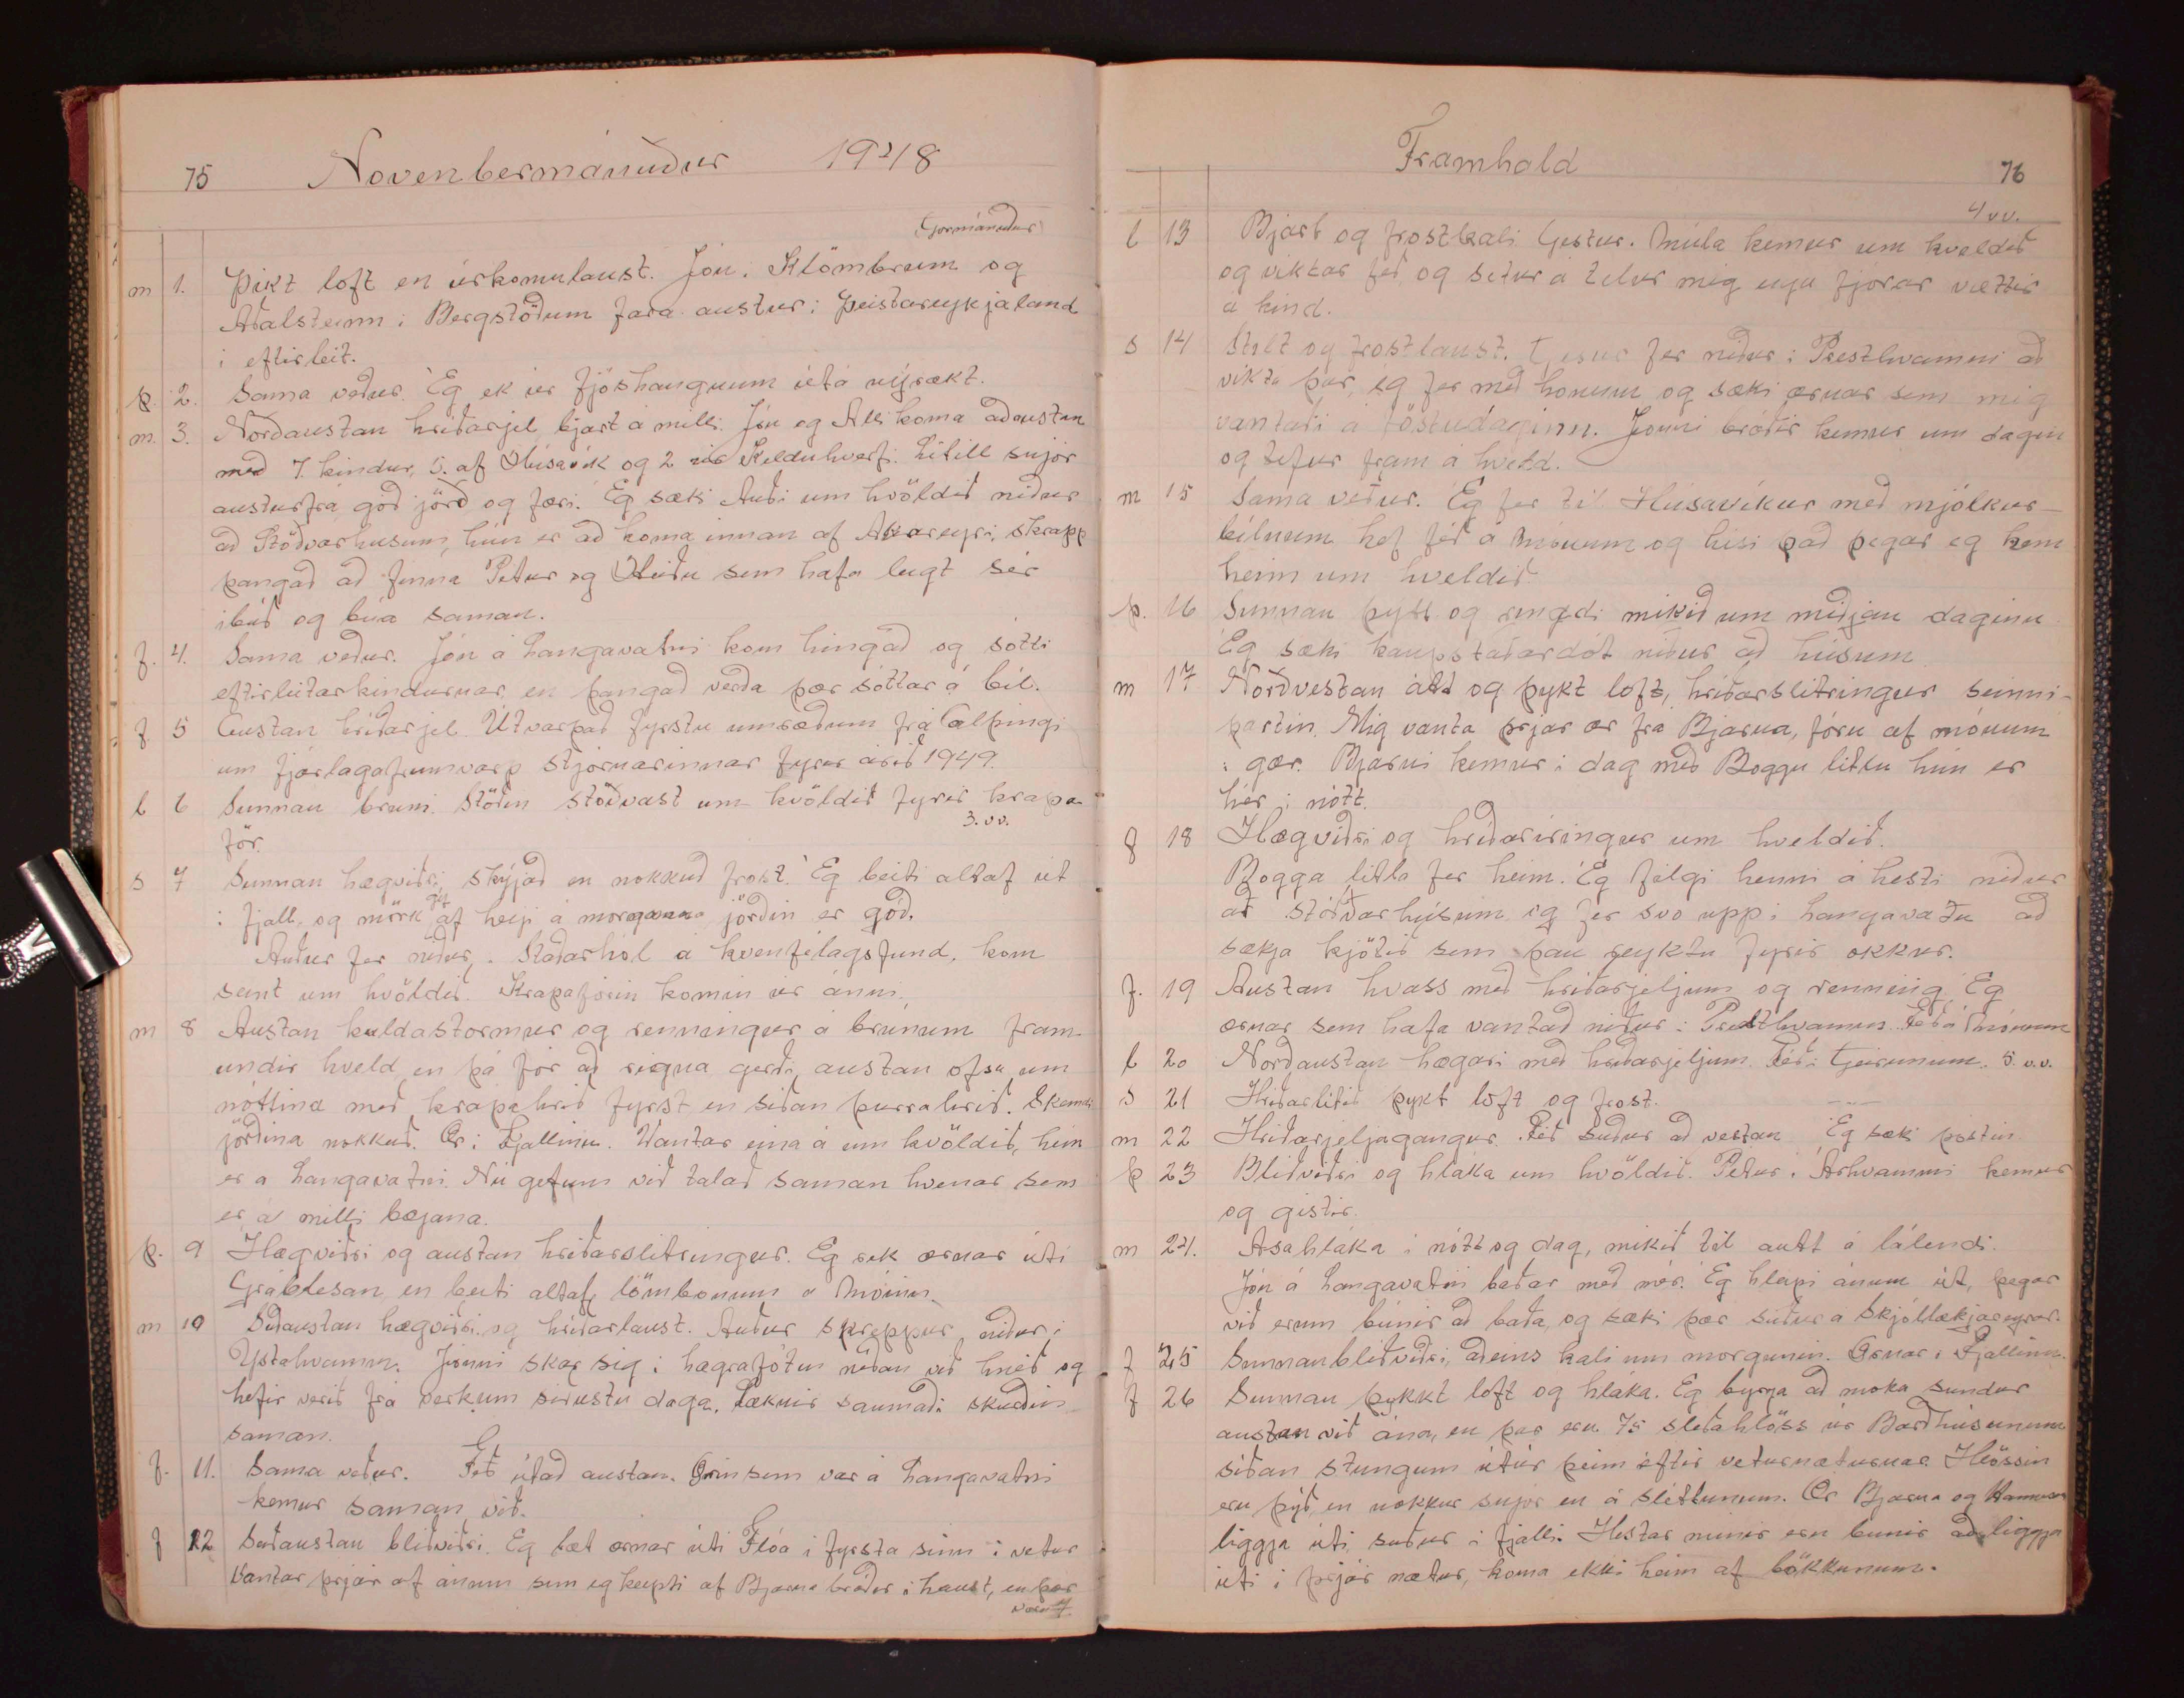 75 Novenbermánuður 1948
(Gormánuður)
m 1. Þikt loft en úrkomulaust. Jón í Klömbrum og
Aðalsteinn í Bergstöðum fara austur í Þeistareykjaland
í eftirleit.
þ. 2. Sama veður. Ég ek úr fjóshaugnum útá nýrækt.
m. 3. Norðaustan hríðarjel bjart á milli. Jón og Alli koma að austan
með 7 kindur, 5. af Húsavík og 2 úr Kelduhverfi. Lítill snjór
austurfrá góð jörð og færi. Ég sæki Auði um kvöldið niður
að Stöðvarhúsum, hún er að koma innan af Akureyri, skrapp
þangað að finna Petur og Heiðu sem hafa leigt sér
íbúð og búa saman.
f. 4. Sama veður. Jón á Langavatni kom hingað og sótti
eftirleitarkindurnar, en þangað verða þær sóttar á bíl.
f 5 Austan hríðarjel. Útvarpað fyrstu umræðum frá Alþingi
um fjárlagafrumvarp stjórnarinnar fyrir árið 1949.
l 6 Sunnan bruni. Stöðin stöðvast um kvöldið fyrir krapa-
för. 3. vv.
s 7 Sunnan hægviðri, skýjað en nokkuð frost. Ég beiti altaf út
í fjall, og mörk gef af heyi á morgnana jörðin er góð.
Auður fer niður í Staðarhól á kvenfélagsfund, kom
seint um kvöldið. Krapaförin komin úr ánni.
m 8 Austan kuldastormur og renningur á brúnum fram
undir kveld en þá fór að rigna gerði austan ofsa um
nóttina með krapahríð fyrst en síðan þurrahríð. Skemdi
jörðina nokkuð. Ær í Fjallinu. Vantar eina á um kvöldið, hún
er á Langavatni. Nú getum við talað saman hvenar sem
er á milli bæjana.
þ. 9 Hægviðri og austan hríðarslitringur. Eg rek ærnar útí
Grablesan en beiti altaf lömbonum á Móinn.
m 10 Suðaustan hægviðri og hríðarlaust. Auður skreppur niður í
Ystahvamm. Jonni skar sig í hægrafótin neðan við hnéð og
hefir verið frá verkum síðustu daga. Læknir saumaði skurðin
saman.
f. 11. Sama veður. Féð útað austan. Ærin sem var á Langavatni
kemur saman við.
f 12 Suðaustan blíðviðri. Eg læt ærnar útí Flóa í fyrsta sinn í vetur
Vantar þrjár af ánum sem eg keypti af Bjarna bróður í haust, en þær
voru 7
Framhald 76
4 vv.
l 13 Bjart og frostkali Gestur í Múla kemur um kveldið
og viktar féð, og setur á telur mig eiga fjórar vættir
á kind.
s 14 Stilt og frostlaust. Gestur fer niður í Presthvammi að
vikta þar, ég fer með honum og sæki ærnar sem mig
vantaði á föstudaginn. Jonni bróðir kemur um dagin
og tefur fram á kveld.
m 15 Sama veður. Ég fer til Húsavíkur með mjólkur-
bílnum hef féð á Mónum og hísi það þegar eg kem
heim um kveldið.
þ. 16 Sunnan þýtt og rigndi mikið um miðjan daginn
Ég sæki kaupstaðardót niður að húsum
m 17 Norðvestan átt og þykt loft, hríðarslitringur seinni-
partin. Mig vanta þrjár ær frá Bjarna, fóru af mónum
í gær. Bjarni kemur í dag með Boggu litlu hún er
hér í nótt.
f 18 Hægviðri og hríðaríringur um kveldið.
Bogga litla fer heim. Ég fylgi henni á hesti niður
að stöðvarhúsum og fer svo upp í Langavatn að
sækja kjötið sem þau reyktu fyrir okkur.
f. 19 Austan hvass með hríðarjeljum og renning. Eg
ærnar sem hafa vantað niður í Presthvammi. Féð á mónum
l 20 Norðaustan hægari með hríðarjeljum. Féð í Geirunum. 5. v.v.
s 21 Hríðarlítið þykt loft og frost.
m 22 Hríðarjeljagangur. Féð suður að vestan. Ég sæki postin
þ 23 Blíðviðri og hláka um kvöldið. Petur í Árhvammi kemur
og gistir.
m 24. Asahláka í nótt og dag, mikið til autt á lálendi.
Jón á Langavatni baðar með mér. Eg hleipi ánum út, þegar
við erum búnir að baða, og sæki þær suður á Skjóllækjareyrar.
f 25 Sunnanblíðviðri, aðeins kali um morgunin. Ærnar í Fjallinu.
f 26 Sunnan þykkt loft og hláka. Eg byrja að moka sundur
austan við ána, en þar eru 75 sleðahlöss úr Barðhúsunum
síðan stungum útúr þeim eftir veturnæturnar. Hlössin
eru þýð en nokkur snjór en á slettunum. Ær Bjarna og Hannesar
liggja úti suður í fjalli. Hestar mínir eru bunir að liggja
úti í þrjár nætur, koma ekki heim af bökkunum.